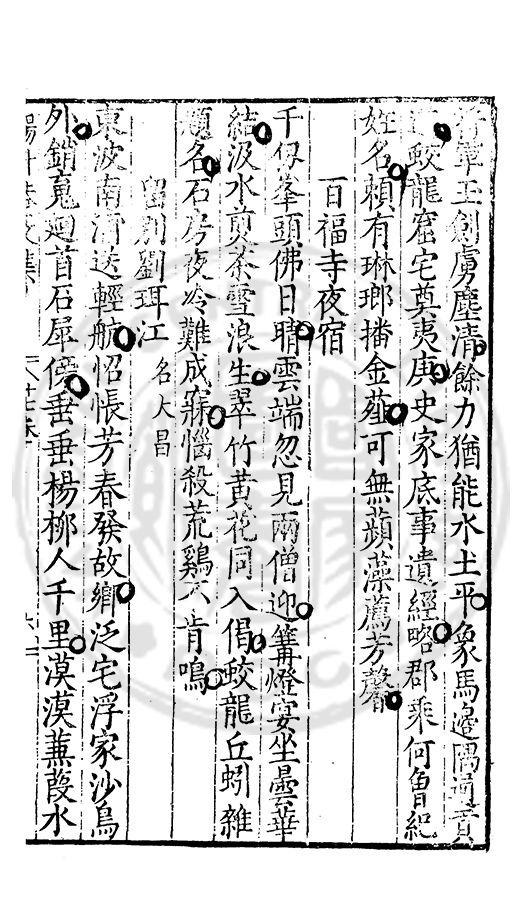 軍玉創虜塵清餘力猶能水土平象馬邊隅通貢
蛟龍窟宅奠夷庚史家底事遺經略郡乘何曾紀
姓名賴有琳瑯播金薤可無蘋藻薦芳馨
百福寺夜宿
千仞峯頭佛日晴雲端忽見兩僧迎篝燈宴坐曇華
結汲水煎茶雪浪生翠竹黃花同入偈蛟龍丘蚓雜
題名石房夜冷難成寐惱殺荒鷄不肯鳴
留別劉珥江 名大昌
東波南浦送輕航怊悵芳春發故鄉泛宅浮家沙鳥
外銷䰟廻首石犀傍垂垂楊柳人千里漠漠蕪葭水